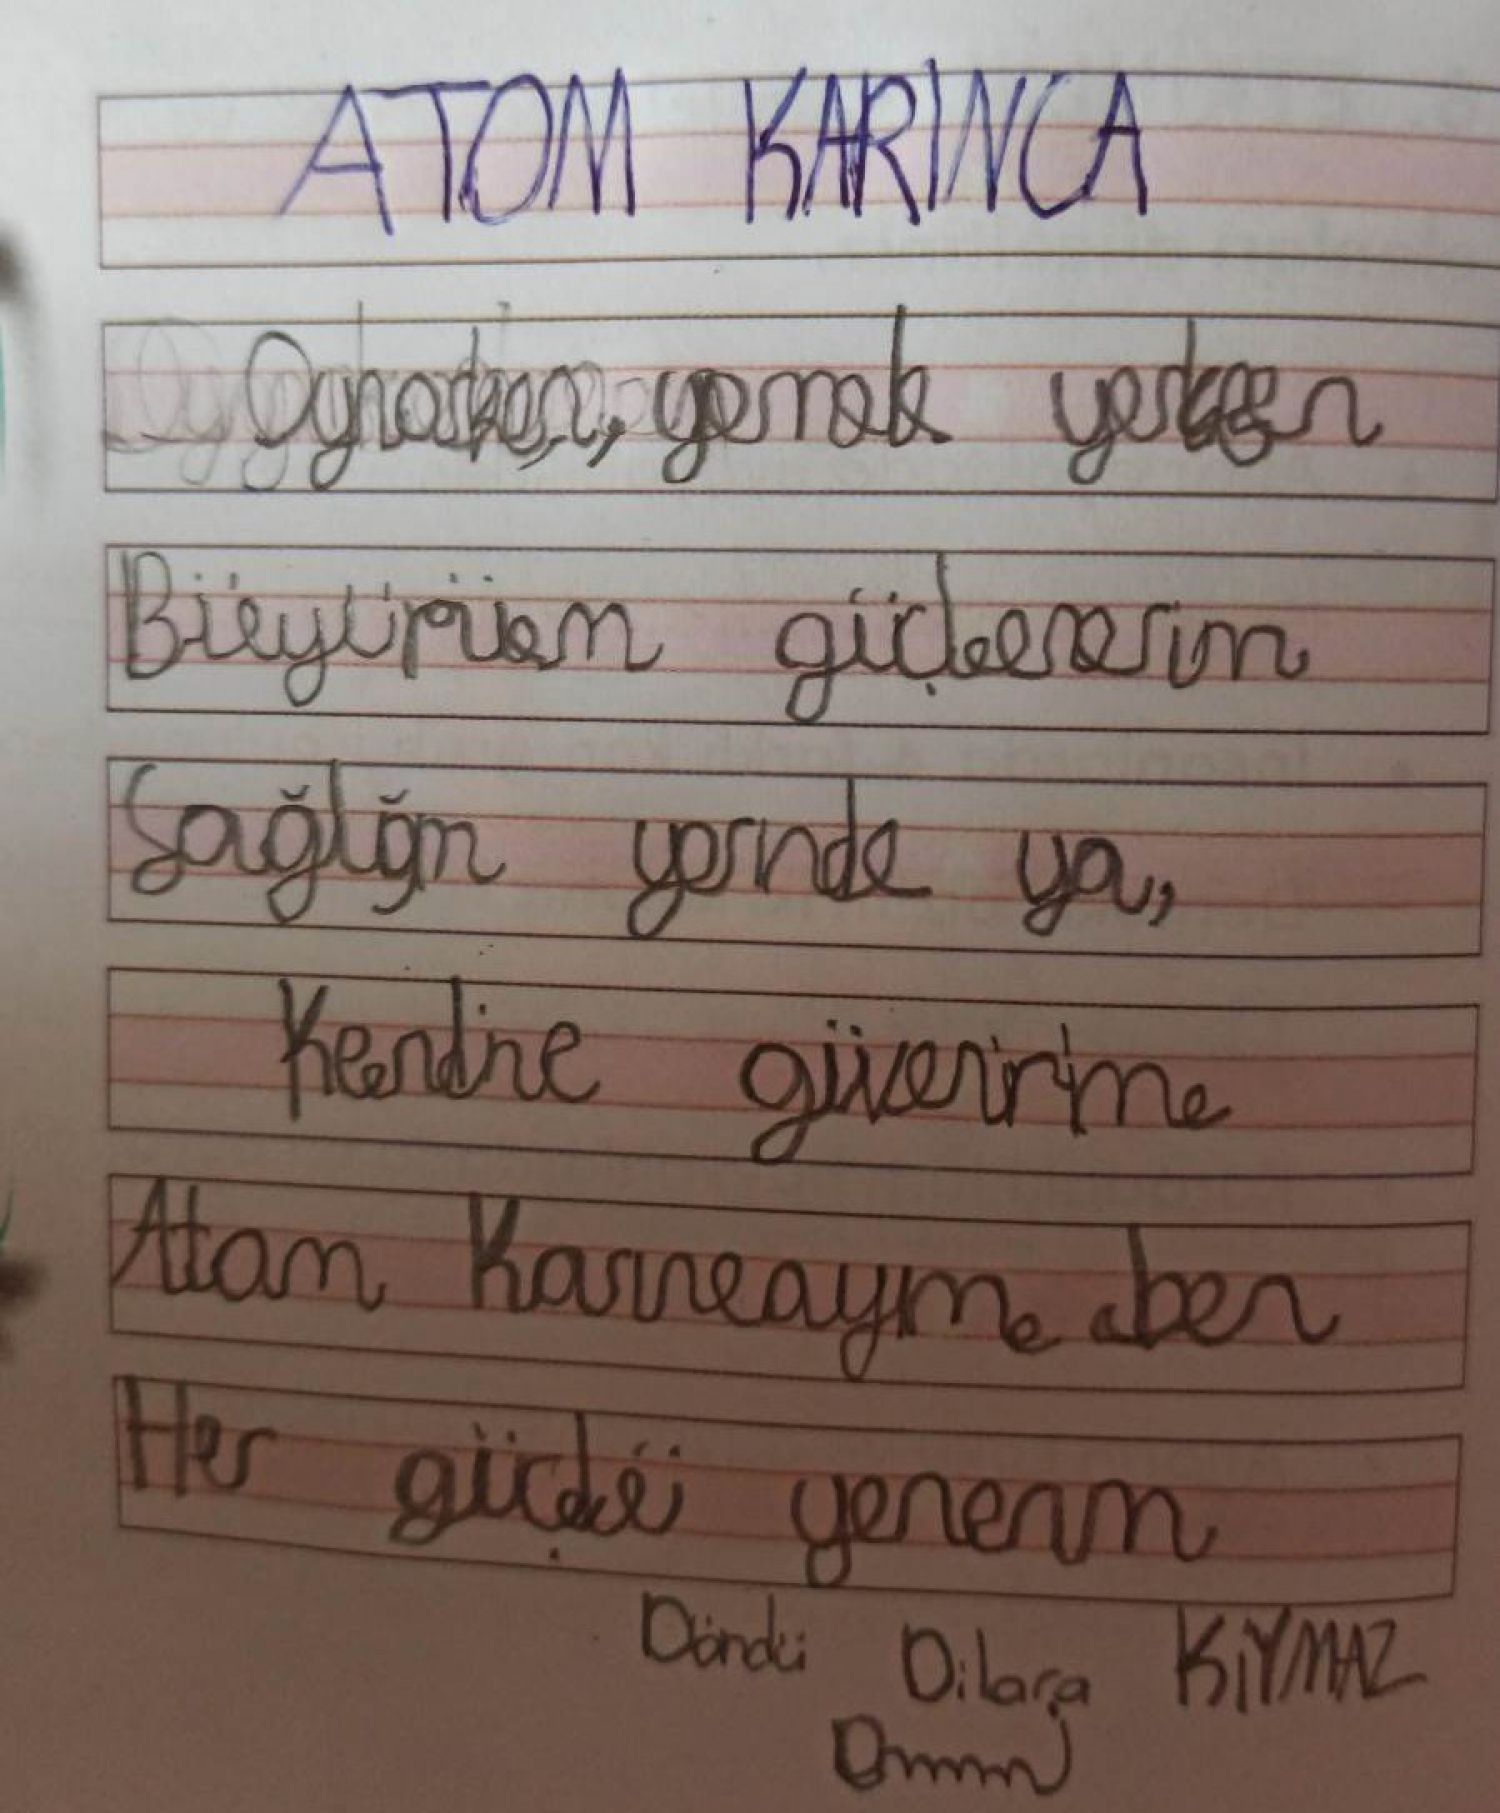 ATOM KARINCA
Oynarken, yemek yerken
Büyürüm güçlenirim
Sağlığım yerinde ya,
Kendime güvenirim
Atom Karıncayım ben
Her güçlüğü yenerim
Döndü Dilara KIYMAZ